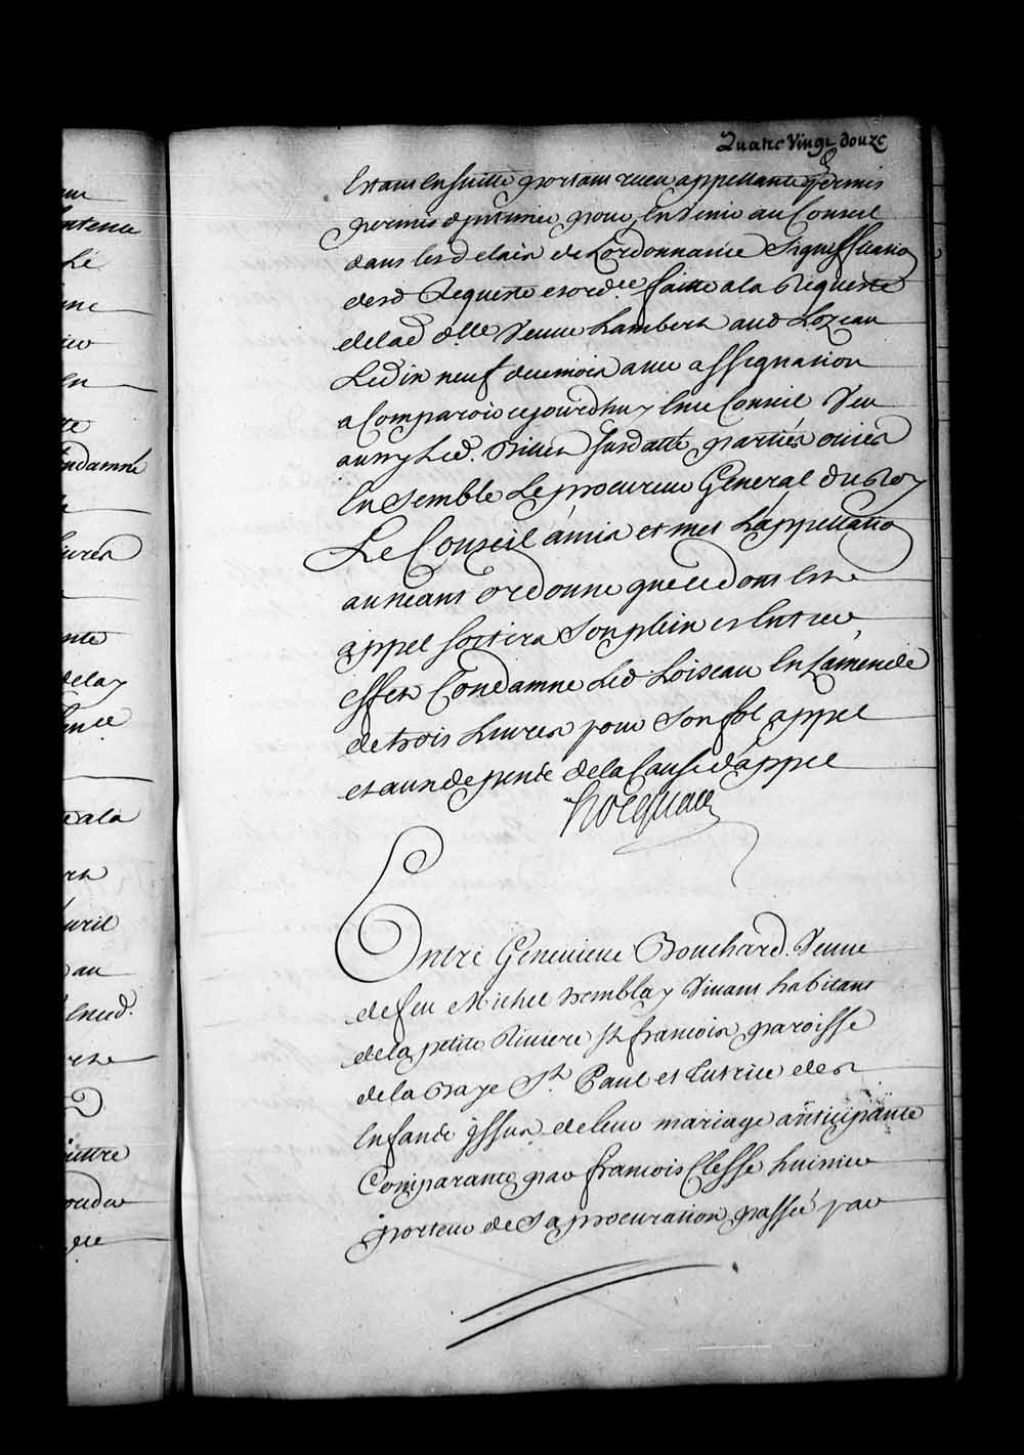 Quatre Vingt douze
Estant Ensuitte portant receu appellante permis
permis d'intimer pour En Venir au Conseil
dans les delais de Lordonnance Signiffication
desd Requeste et ordce faitte ala Requeste
delad. dlle Veuve Lambert aud Lozeau
Ledix neuf decemois avec assignation
a Comparoir cejourdhuy Ence Conseil Veu
aussy Led. Billet Susdatté, parties ouies
Ensemble Le procureur General du Roy
Le Conseil a mis et met Lappellation
au neant ordonne que ce dont Est
appel Sortira Son plein et Entier
effet Condamne Led Loiseau En Lamende
de trois Livres pour Son fol appel
et aux depens de la Cause d'appel
hocquart
Entre Genevieve Bouchard Veuve
de feu Michel tremblay Vivant habitant
de la petite Riviere St francois paroisse
de la Baye St Paul et tutrice des
Enfants issus de leur mariage anticipante
Comparante par francois Clesse huissier
porteur de Sa procuration passée par
ue
ntenu
Lé
nne
ier
En
te
ndamne
ivres
nte
delay
ence
ala
vril
au
Encd.
rte
uttre
oudu
que